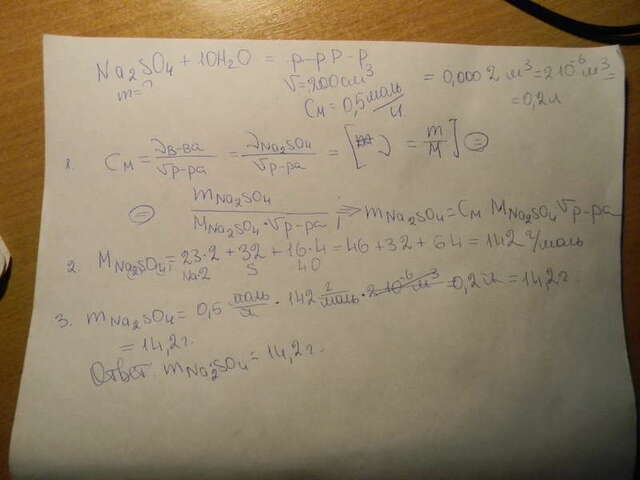 Na₂SO₄ + 10H₂O = р-р р-р
m=? V=200см³ = 0,0002 м³=2 10⁻⁶м³=
Cм=0,5 моль/л =0,2л
1. Cм = νв-ва/Vр-ра = νNa₂SO₄/Vр-ра = [ν = m/M] =
= mNa₂SO₄/MNa₂SO₄·Vр-ра ⇒ mNa₂SO₄=Cм MNa₂SO₄ Vр-ра
2. MNa₂SO₄ = 23·2 + 32 + 16·4=46 + 32 + 64 = 142 г/моль
Na·2 S 4O
3. mNa₂SO₄= 0,5 моль/л · 142 г/моль · 2 10⁻⁶ м³ 0,2 л = 14,2г.
= 14,2г.
Ответ. mNa₂SO₄= 14,2г.